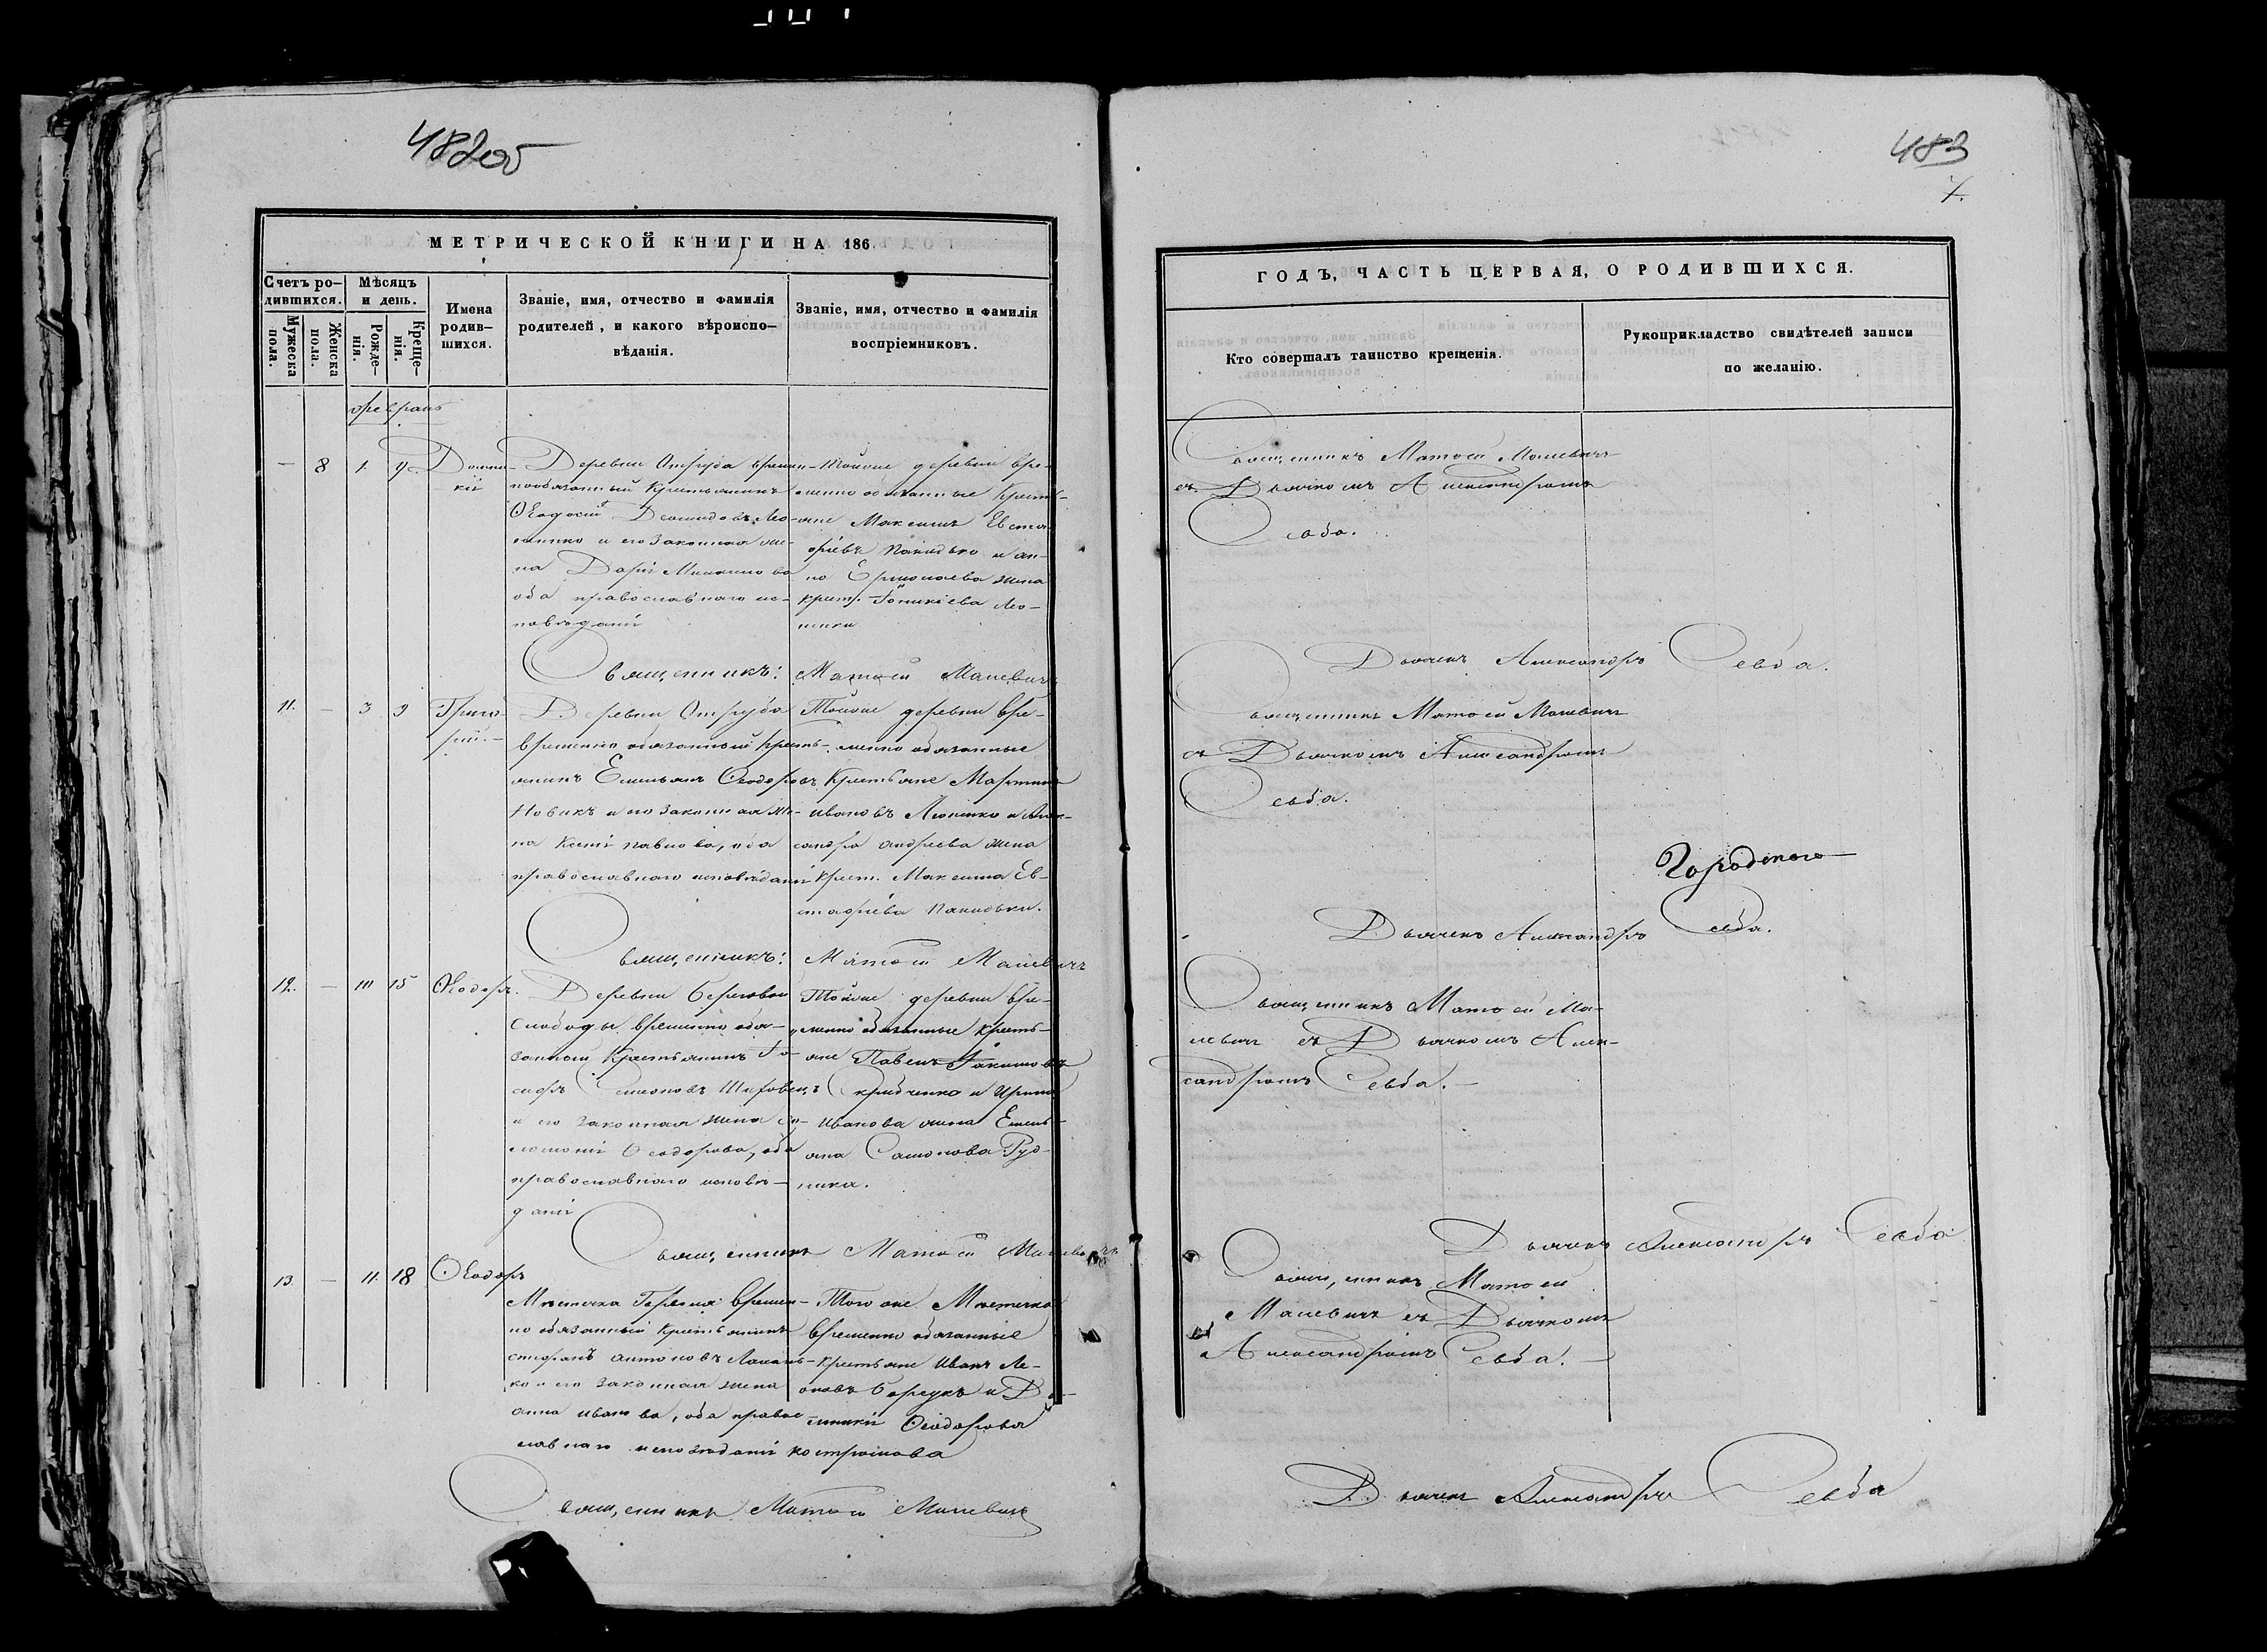 482об
МЕТРИЧЕСКОЙ КНИГИ НА 186
Счетъ ро-
дившихся.
Мѣсяцъ
и день.
Мужеска
пола.
Женска
пола.
Рожде-
нія.
Креще-
нія.
Имена
родив-
шихся.
Званіе, имя, отчество и фамилія
родителей, и какого вѣроиспо-
вѣданія.
Званіе, имя, отчество и фамилія
воспріемниковъ.
февраль
8 1. 9.
Домни-
кія
Деревни Отруба времен-
нообязанный Крестьянинъ
Ѳеодосій
и его законная же-
на
оба православнаго ис-
повѣданія
Тойже деревни вре-
менно обязанные Кресть-
яне Максимъ Евста-
фіевъ и Ан-
на Ермолаева жена
крест.
Священникъ: Матѳей Малевичъ
11. – 3 9
Григо-
рій.
Деревни Отруба
временно обязанный кресть-
янинъ Емельянъ Ѳеодоровъ
Новикъ и его законная же-
на Ксенія Павлова, оба
православнаго исповѣданія
Тойже деревни вре-
менно обязанные
Крестьяне Мартинъ
Ивановъ и Алек-
сандра Андреева жена
Крест. Максима Ев-
стафіева
Священникъ: Матѳей Малевичъ
12. – 10 15
Ѳеодоръ.
Деревни Береговой
Слободы временно обя-
занный Крестьянинъ Іо-
сифъ Симоновъ
и его законная жена Со-
ломонія Ѳеодорова, оба
православнаго исповѣ-
данія
Тойже деревни вре-
менно обязанные кресть-
яне Павелъ Іакимовъ
и Ирина
Иванова жена Емель-
яна Самонова Руд-
ника.
Священникъ Матѳей Малевичъ
13. – 11. 18
Ѳеодоръ
Мѣстечка времен-
но обязанный Крестьянинъ
Стефанъ Антоновъ
и его законная жена
Анна Иванова, оба правос-
лавнаго исповѣданія
Того же Мѣстечка
временно обязанные
крестьяне Иванъ Ле-
оновъ Борсукъ и До-
мникія Ѳеодорова
Священникъ Матѳей Малевичъ
483
7.
ГОДЪ, ЧАСТЬ ПЕРВАЯ, О РОДИВШИХСЯ.
Кто совершалъ таинство крещенія.
Рукоприкладство свидѣтелей записи
по желанію.
Священникъ Матѳей Малевичъ
съ Дьячкомъ Александромъ
Севба.
Дьячекъ Александръ Севба.
Священникъ Матѳей Малевичъ
съ Дьячкомъ Александромъ
Севба.
Городского
Дьячекъ Александръ Севба.
Священникъ Матѳей Ма-
левичъ съ Дьячкомъ Алек-
сандромъ Севба.
Дьячекъ Александръ Севба
Священникъ Матѳей
Малевичъ съ Дьячкомъ
Александромъ Севба.
Дьячекъ Александръ Севба